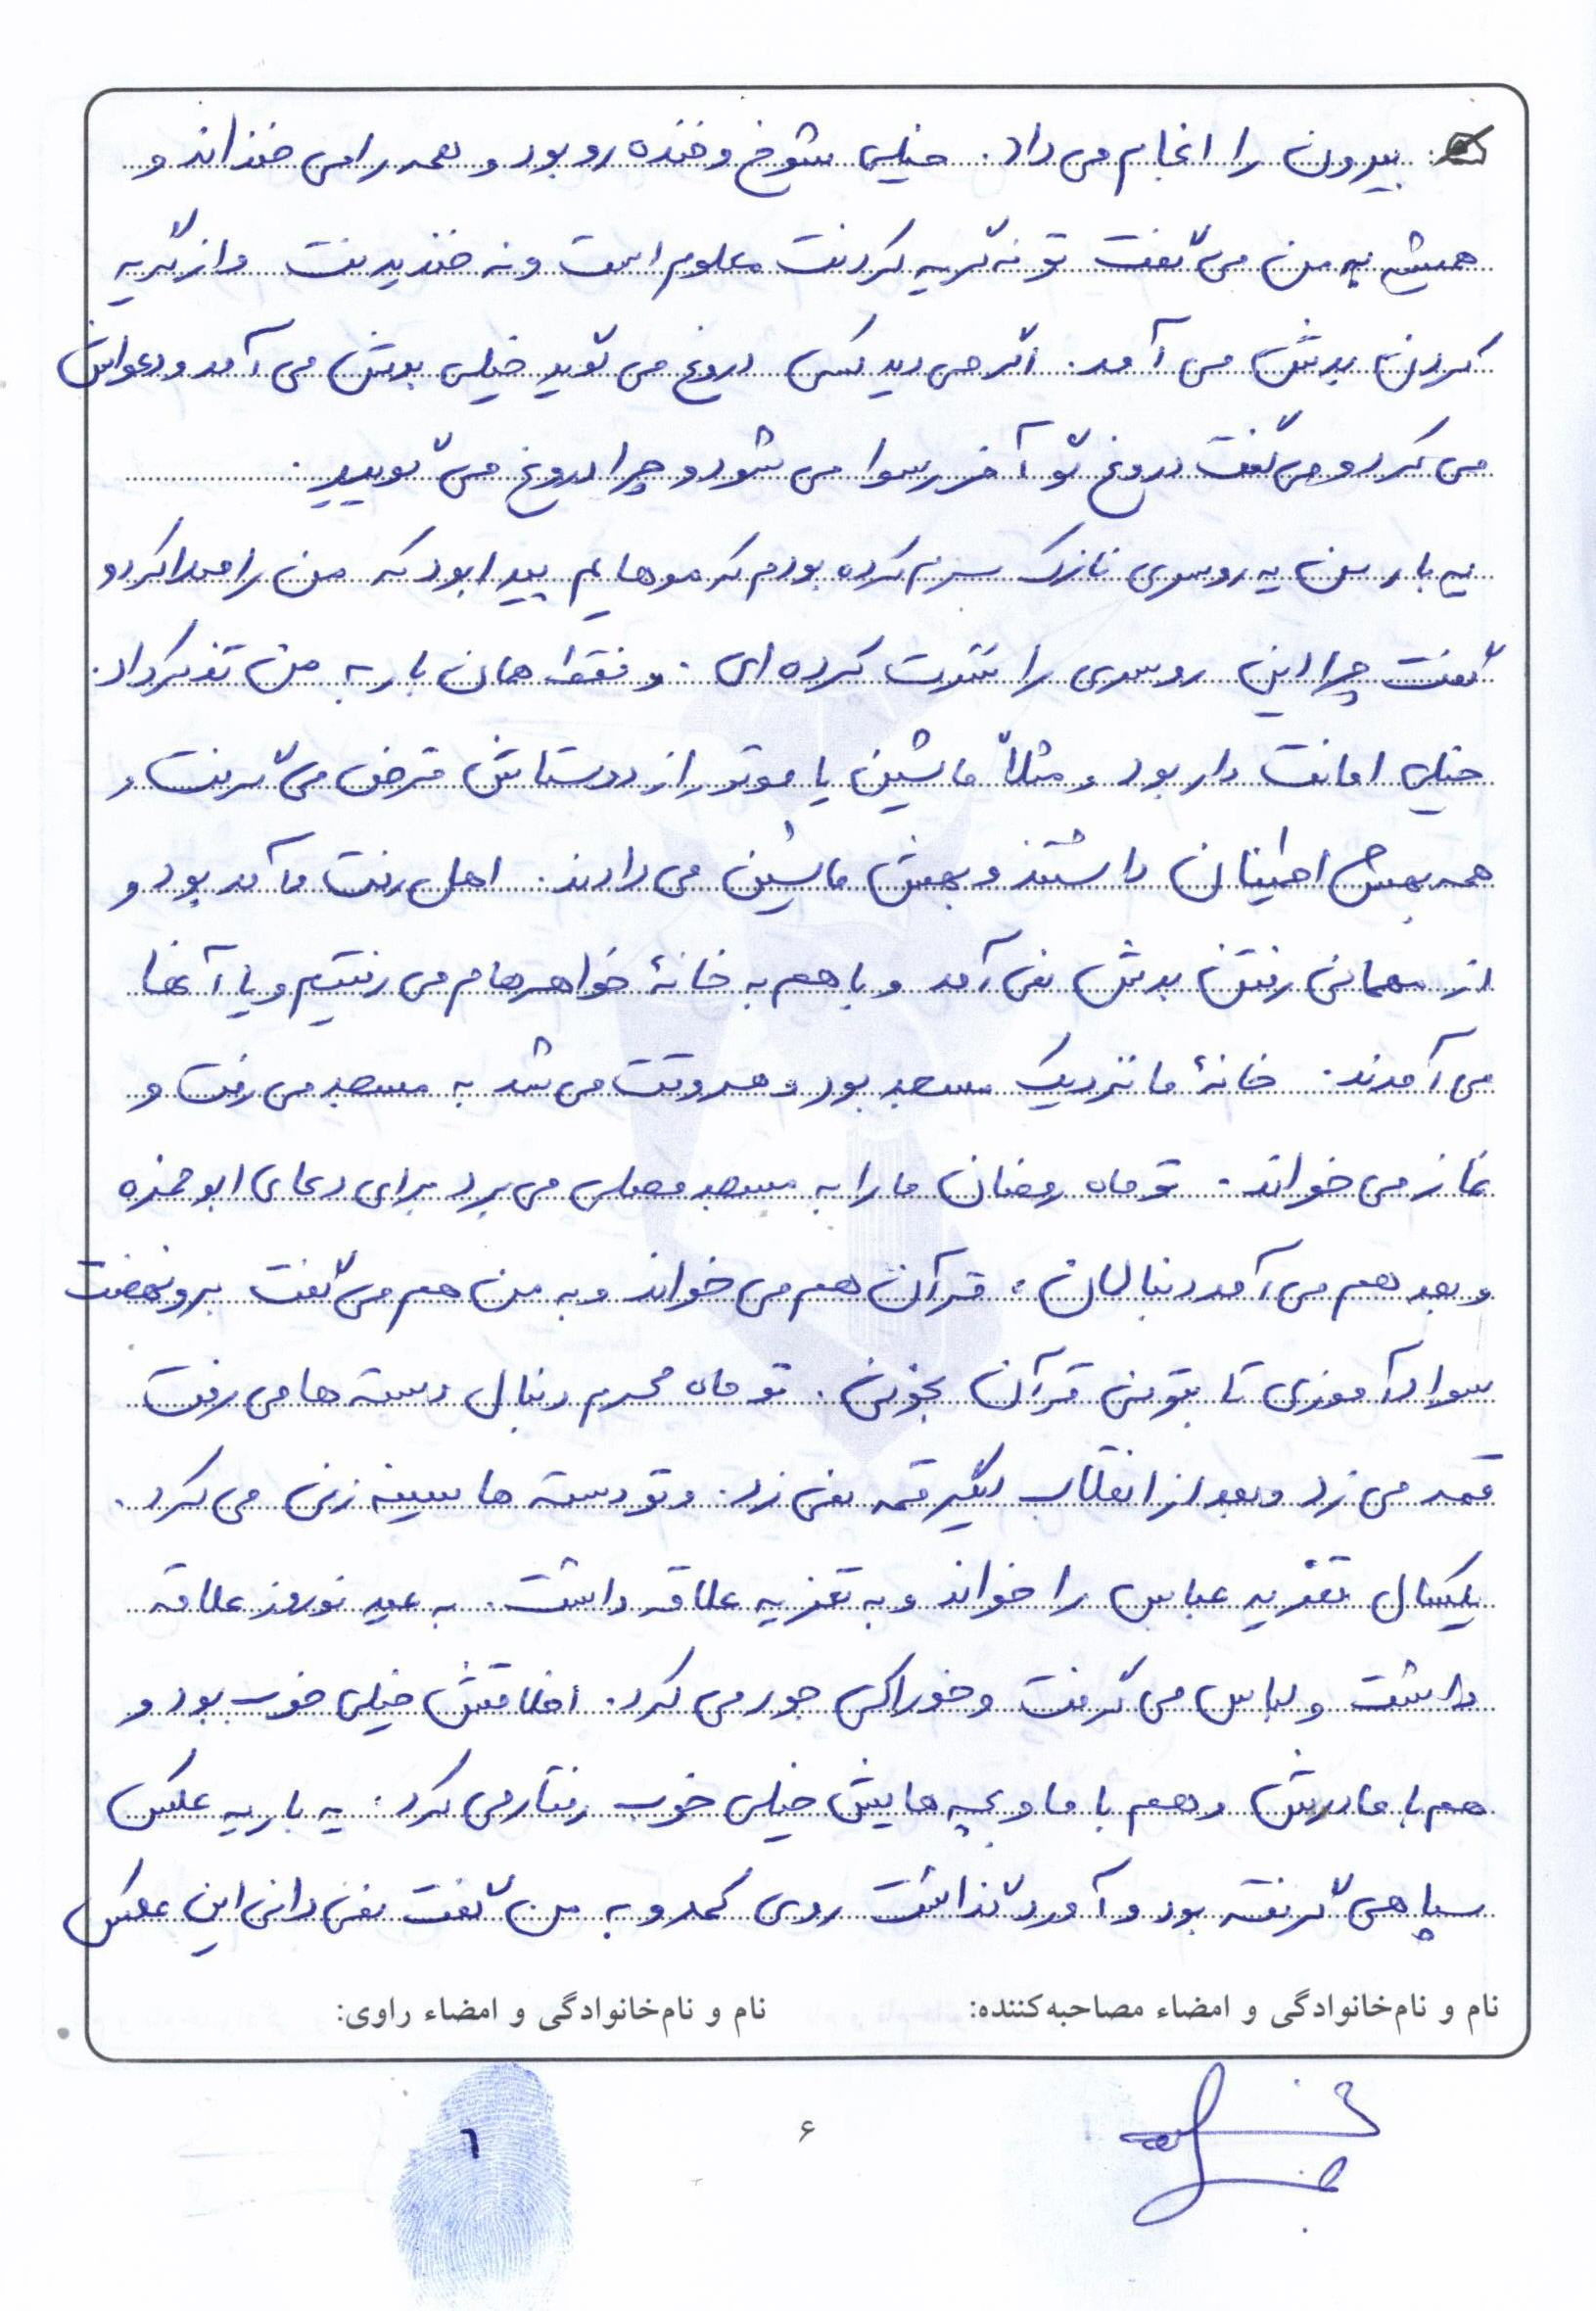 بیرون را انجام می داد. خیلی شوخ و خنده رو بود و همه را می خنداند و
همیشه به من می گفت تو نه گریه کردنت معلوم است و نه خندیدنت و از گریه
کردن بدش می آمد. اگر می دید کسی دروغ می گوید خیلی بدش می آمد و دعواش
می کرد و می گفت دروغ گو آخر رسوا می شود و چرا دروغ می گویید.
یه بار من یه روسری نازک سرم کرده بودم که موهایم پیدا بود که من را صدا کرد و
گفت چرا این روسری را سرت کرده ای. و فقط همان بار به من تذکر داد.
خیلی امانت دار بود و مثلاً ماشین یا موتور از دوستاش قرض می گرفت و
همه بهش اطمینان داشتند و بهش ماشین می دادند. اهل رفت و آمد بود و
از مهمانی رفتن بدش نمی آمد و با هم به خانهٔ خواهرهام می رفتیم و یا آنها
می آمدند. خانهٔ ما نزدیک مسجد بود و هر وقت می شد به مسجد می رفت و
نماز می خواند. تو ماه رمضان ما را به مسجد مصلی می برد برای دعای ابوحمزه
و بعد هم می آمد دنبالمان. قرآن هم می خواند و به من هم می گفت برو نهضت
سوادآموزی تا بتونی قرآن بخونی. تو ماه محرم دنبال دسته ها می رفت
قمه می زد و بعد از انقلاب دیگر قمه نمی زد. و تو دسته ها سینه زنی می کرد.
یکسال تعزیه عباس را خواند و به تعزیه علاقه داشت. به عید نوروز علاقه
داشت و لباس می گرفت و خوراکی جور می کرد. اخلاقش خیلی خوب بود و
هم با مادرش و هم با ما و بچه هایش خیلی خوب رفتار می کرد. یه بار یه عکس
سپاهی گرفته بود و آورد گذاشت روی کمد و به من گفت نمی دانی این عکس
نام و نام‌خانوادگی و امضاء مصاحبه‌کننده:
نام و نام‌خانوادگی و امضاء راوی:
۶